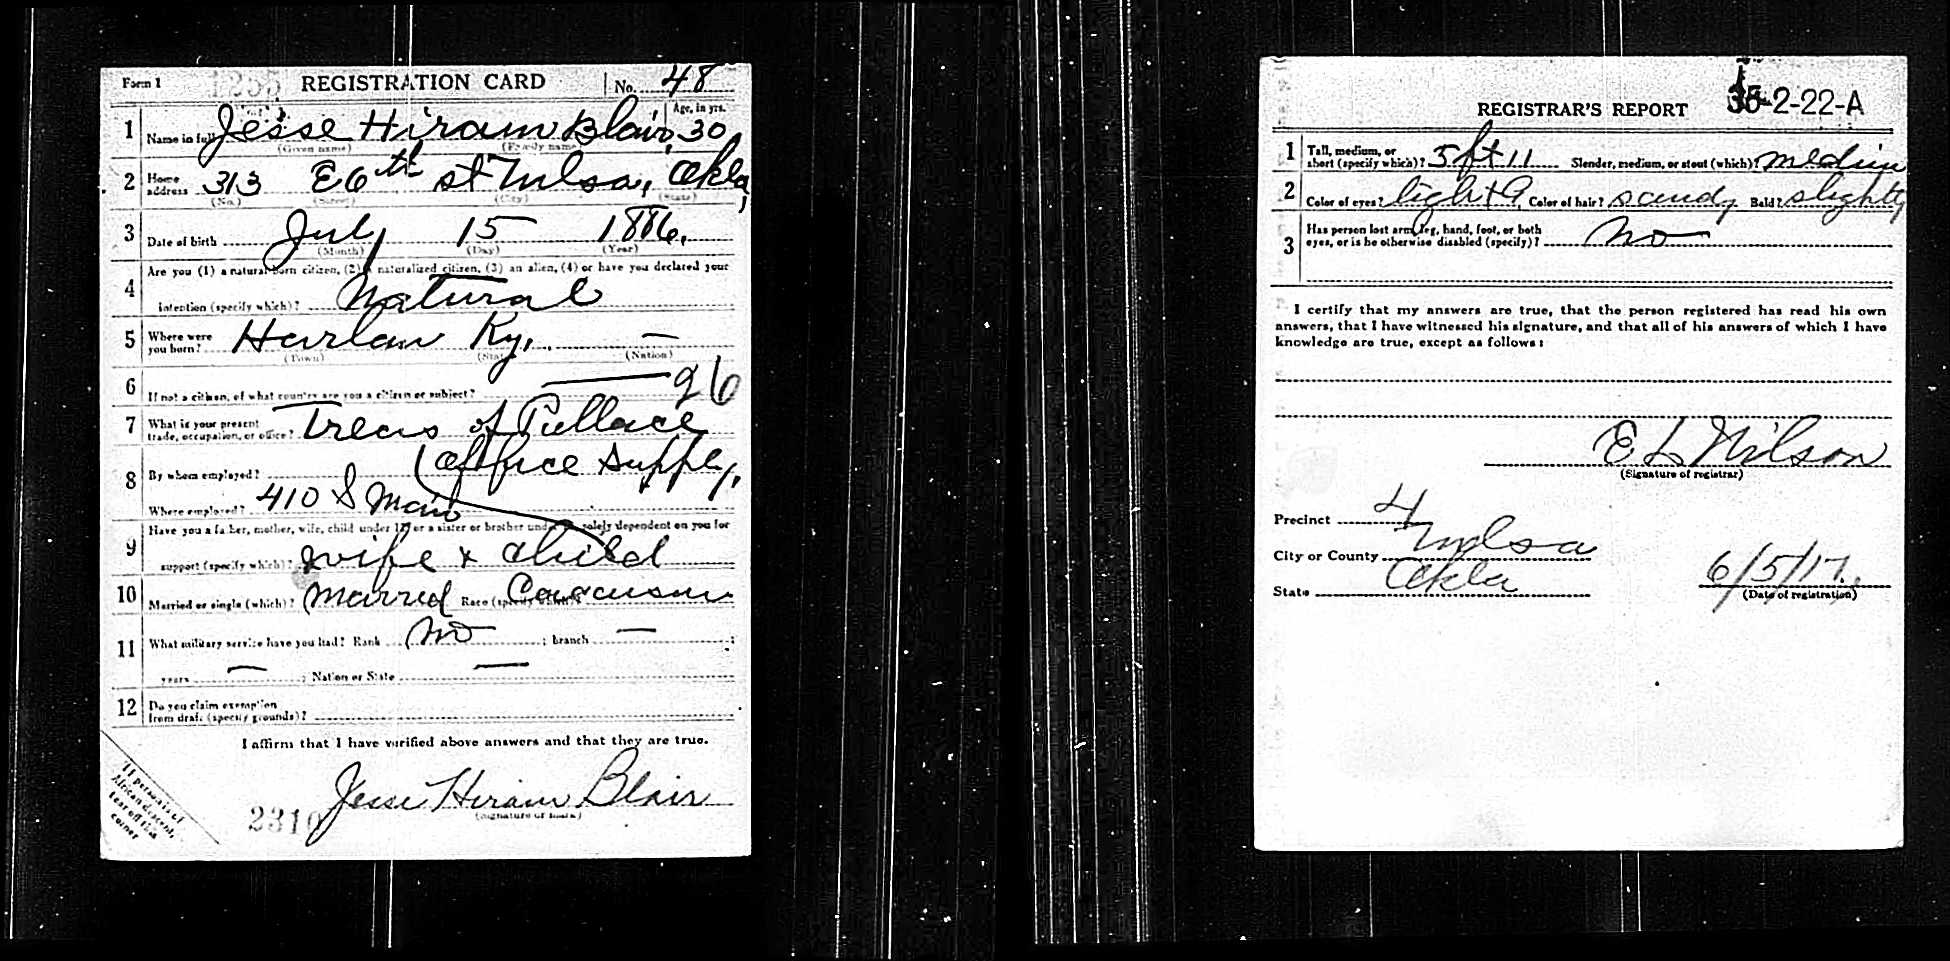 Form 1 1255 REGISTRATION CARD No. 48
1 Name in full Jesse Hiram Blair, Age, in yrs. 30
(Given name) (Family name)
2 Home address 313 E 6th st Tulsa, Okla,
(No.) (Street) (City) (State)
3 Date of birth July 15 1886.
(Month) (Day) (Year)
4 Are you (1) a natural born citizen, (2) a naturalized citizen, (3) an alien, (4) or have you declared your
intention (specify which)? Natural
5 Where were you born? Harlan Ky. —
(Town) (State) (Nation)
6 If not a citizen, of what country are you a citizen or subject? — 26
7 What is your present trade, occupation, or office? Treas of
8 By whom employed? Office Supply,
Where employed? 410 S Main
9 Have you a father, mother, wife, child under 12, or a sister or brother under 12, solely dependent on you for
support (specify which)? wife + child
10 Married or single (which)? Married Race (specify which)?
11 What military service have you had? Rank no ; branch — ;
years — ; Nation or State —
12 Do you claim exemption
from draft (specify grounds)?
I affirm that I have verified above answers and that they are true.
Jesse Hiram Blair
(Signature or mark)
2310
If person is of
African descent,
tear off this
corner
REGISTRAR'S REPORT 35-2-22-A
1 Tall, medium, or short (specify which)? 5 ft 11 Slender, medium, or stout (which)? medium
2 Color of eyes? light Color of hair? sandy Bald? slightly
3 Has person lost arm, leg, hand, foot, or both
eyes, or is he otherwise disabled (specify)? no
I certify that my answers are true, that the person registered has read his own
answers, that I have witnessed his signature, and that all of his answers of which I have
knowledge are true, except as follows:
E L Wilson
(Signature of registrar)
Precinct 4
City or County Tulsa
State Okla 6/5/17.
(Date of registration)